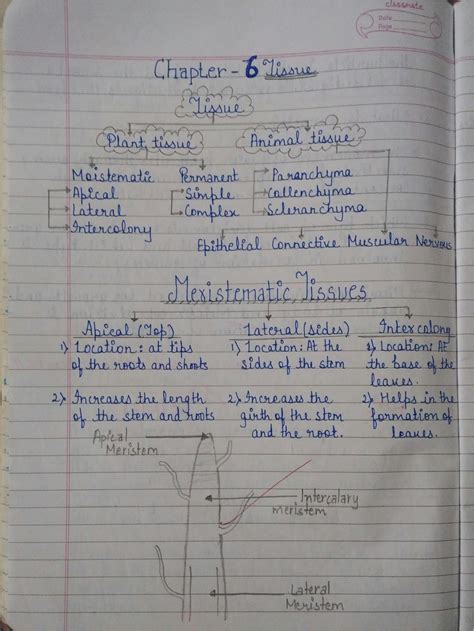 classmate
Date
Page
Chapter - 6 Tissue
Tissue
Plant tissue Animal tissue
Moistematic Permanent Paranchyma
Apical Simple Collenchyma
Lateral Complex Scleranchyma
Intercolony
Epithelial Connective Muscular Nervous
Meristematic Tissues
Apical (Top) Lateral (sides) Intercolony
1) Location : at tips 1) Location: At the 1) Location: At
of the roots and shoots sides of the stem the base of the
leaves.
2) Increases the length 2) Increases the 2) Helps in the
of the stem and roots girth of the stem formation of
and the root. leaves.
Apical
Meristem
Intercalary
meristem
Lateral
Meristem